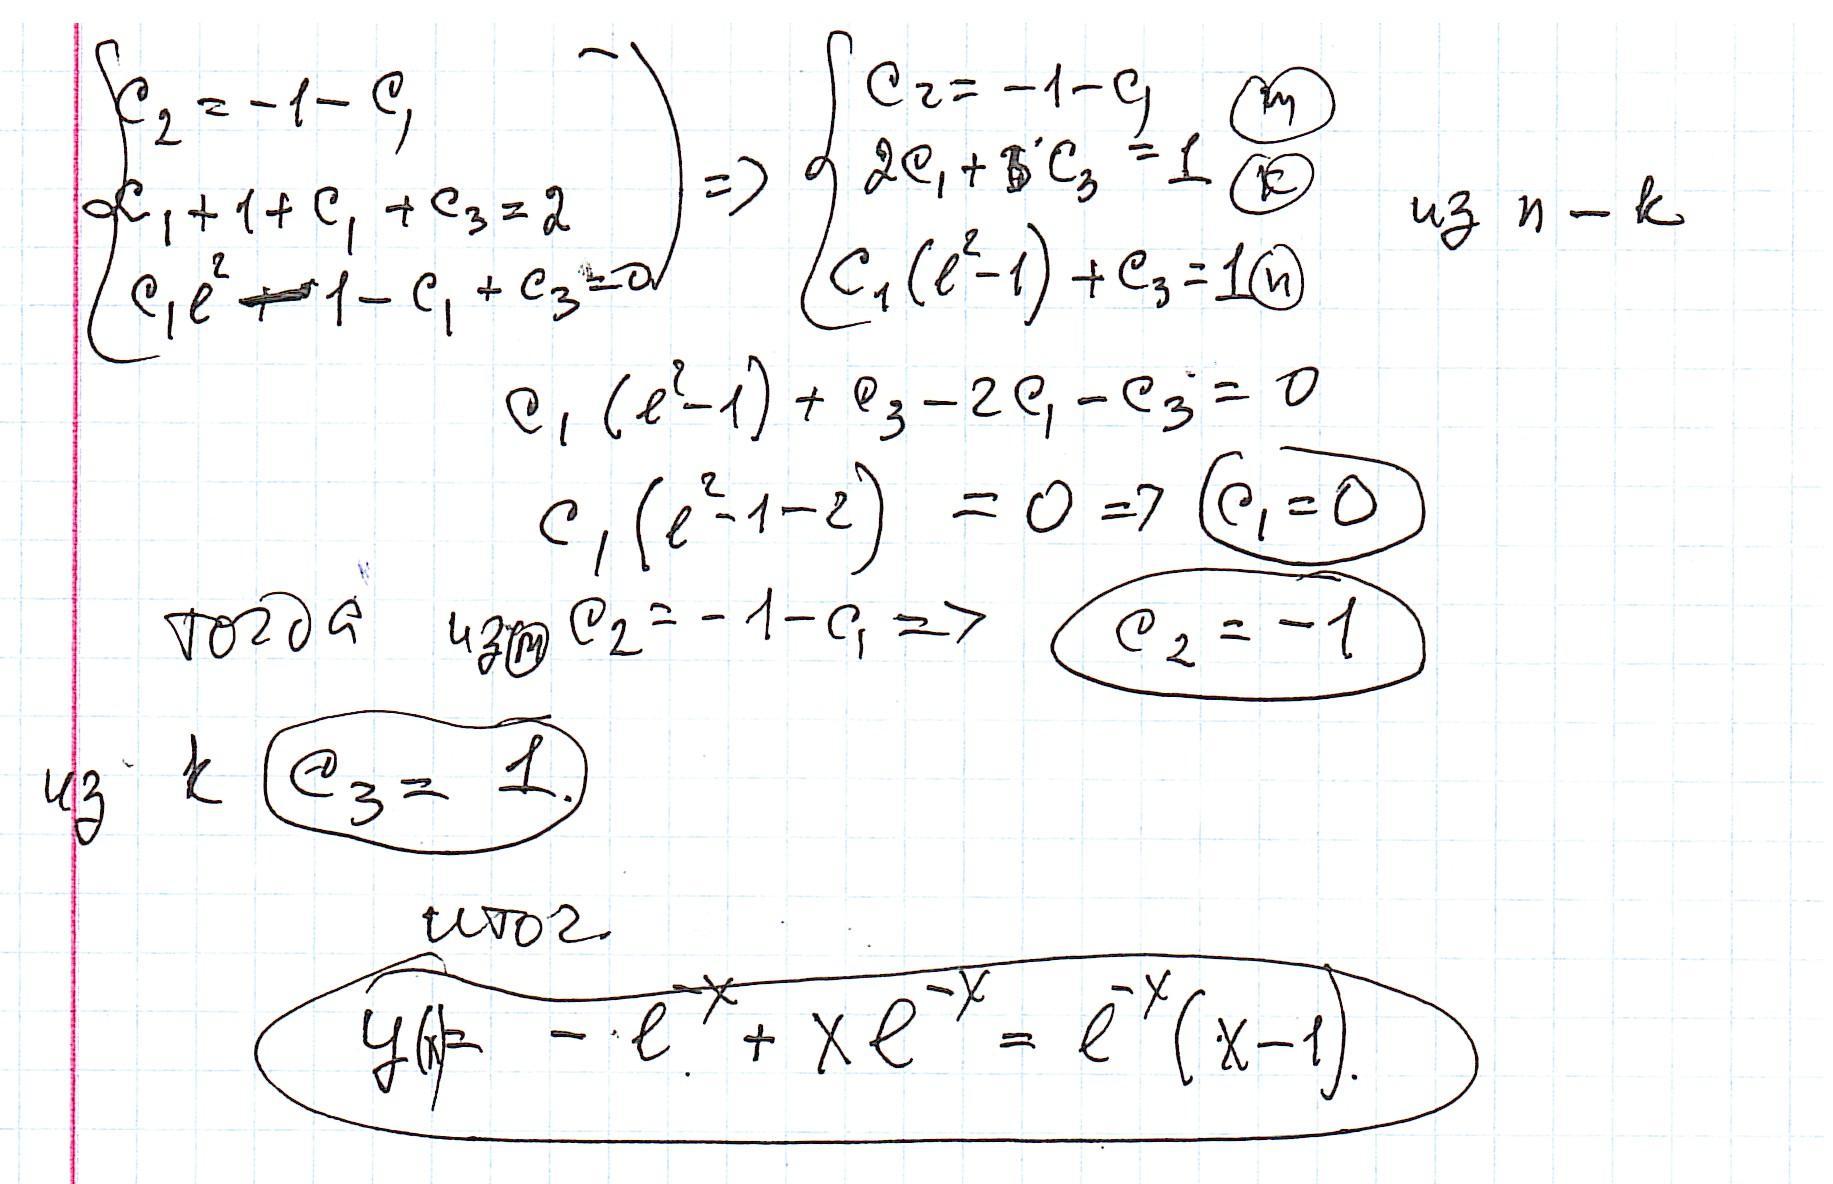 C₂ = -1 - C₁
C₁ + 1 + C₁ + C₃ = 2
C₁e² - 1 - C₁ + C₃ = 0
=>
C₂ = -1 - C₁ (m)
2C₁ + C₃ = 1 (k)
C₁(e² - 1) + C₃ = 1 (n)
из n - k
C₁(e² - 1) + C₃ - 2C₁ - C₃ = 0
C₁(e² - 1 - 2) = 0 => C₁ = 0
тогда из (m) C₂ = -1 - C₁ => C₂ = -1
из k C₃ = 1.
итог
y(x) = - e⁻ˣ + xe⁻ˣ = e⁻ˣ(x - 1).